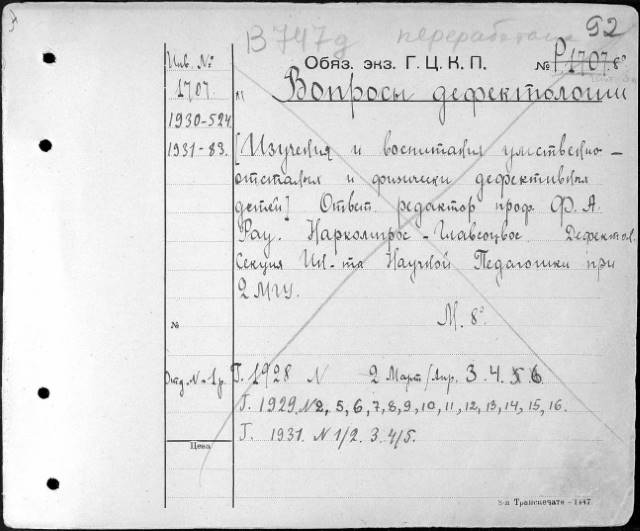 92
В 747д переработана
Инв. №
1707.
1930-524.
1931-83.
Обяз. экз. Г. Ц. К. П. № Р 1707 8°
Вопросы дефектологии
[Изучения и воспитания умственно-
отсталых и физически дефективных
детей] Ответ. редактор проф. Ф. А.
Рау. Наркомпрос-Главсоцвос. Дефектол.
Секция Ин-та Научной Педагогики при
2 МГУ.
М. 8°
№
Отд. N - 1 р. Г. 1928 N 2 Март/Апр. 3. 4. 5 6.
Г. 1929. N 2, 5, 6, 7, 8, 9, 10, 11, 12, 13, 14, 15, 16.
Г. 1931. N 1/2. 3. 4/5.
Цена
3-я Транспечать - 1447